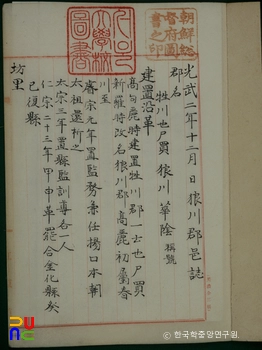 朝鮮總
督府圖
書之印
光武二年十二月日狼川郡邑誌
郡名
牲川 也尸買 狼川 華陰 稱號
建置沿革
高句麗時建置牲川郡一云也尸買
新羅時改名狼川郡高麗初屬春
川至
睿宗元年置監務兼任楊口本朝
太祖還析之
太宗三年置縣監訓導各一人
仁宗二十三年甲申革罷合金化縣癸
巳復縣
坊里
ⓒ 한국학중앙연구원